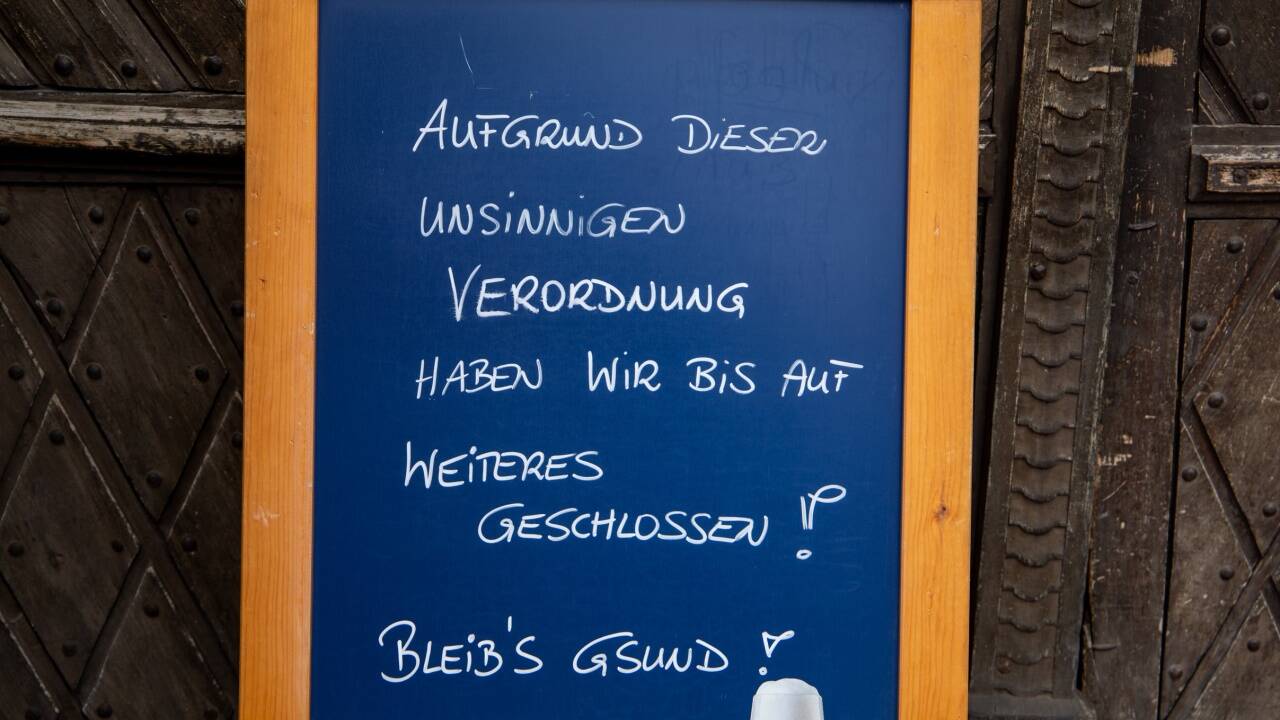 AUFGRUND DIESER
UNSINNIGEN
VERORDNUNG
HABEN WIR BIS AUF
WEITERES
GESCHLOSSEN !
BLEIB'S GSUND !